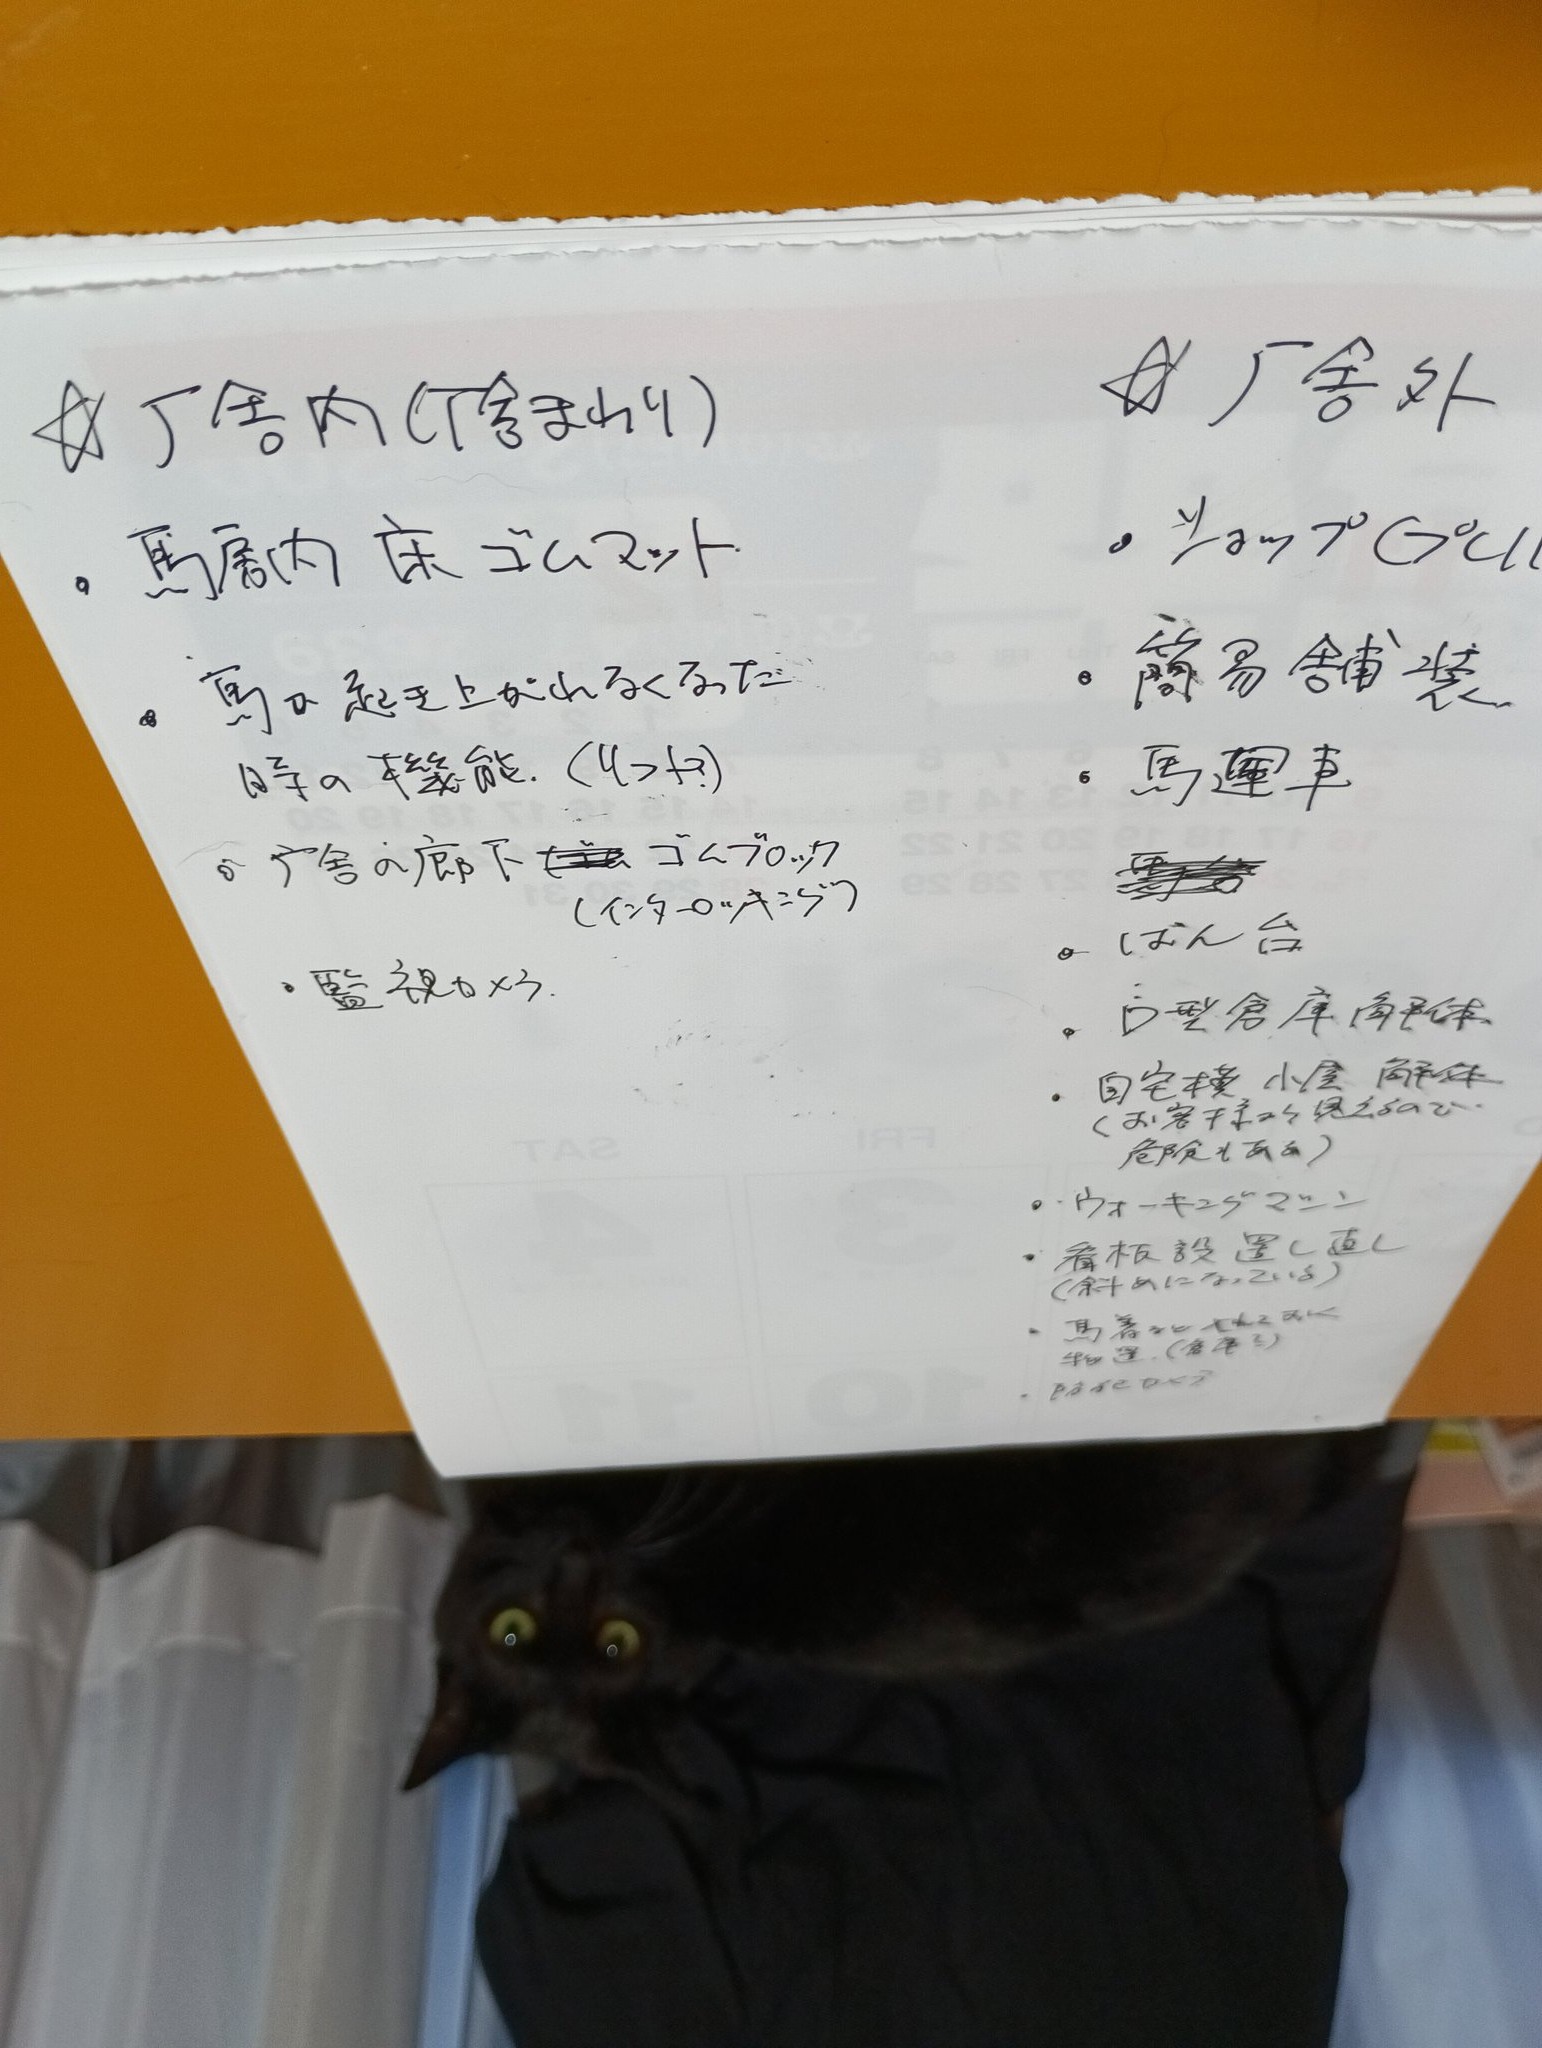 ☆厂舎内(厂舎まわり)
・馬房内 床 ゴムマット
・馬が起き上がれなくなった
時の機能.(リフト?)
・厂舎の廊下 ゴムブロック
(インターロッキング)
・監視カメラ.
☆厂舎外
・ショップ(プレ
・簡易舗装
・馬運車
・ばん台
・D型倉庫解体
・自宅横 小屋 解体
(お客様から見えるので
危険もある)
・ウォーキングマシン
・看板設置し直し
(斜めになっている)
・馬着
・防犯カメラ
SAT
FRI
4
3
11
10